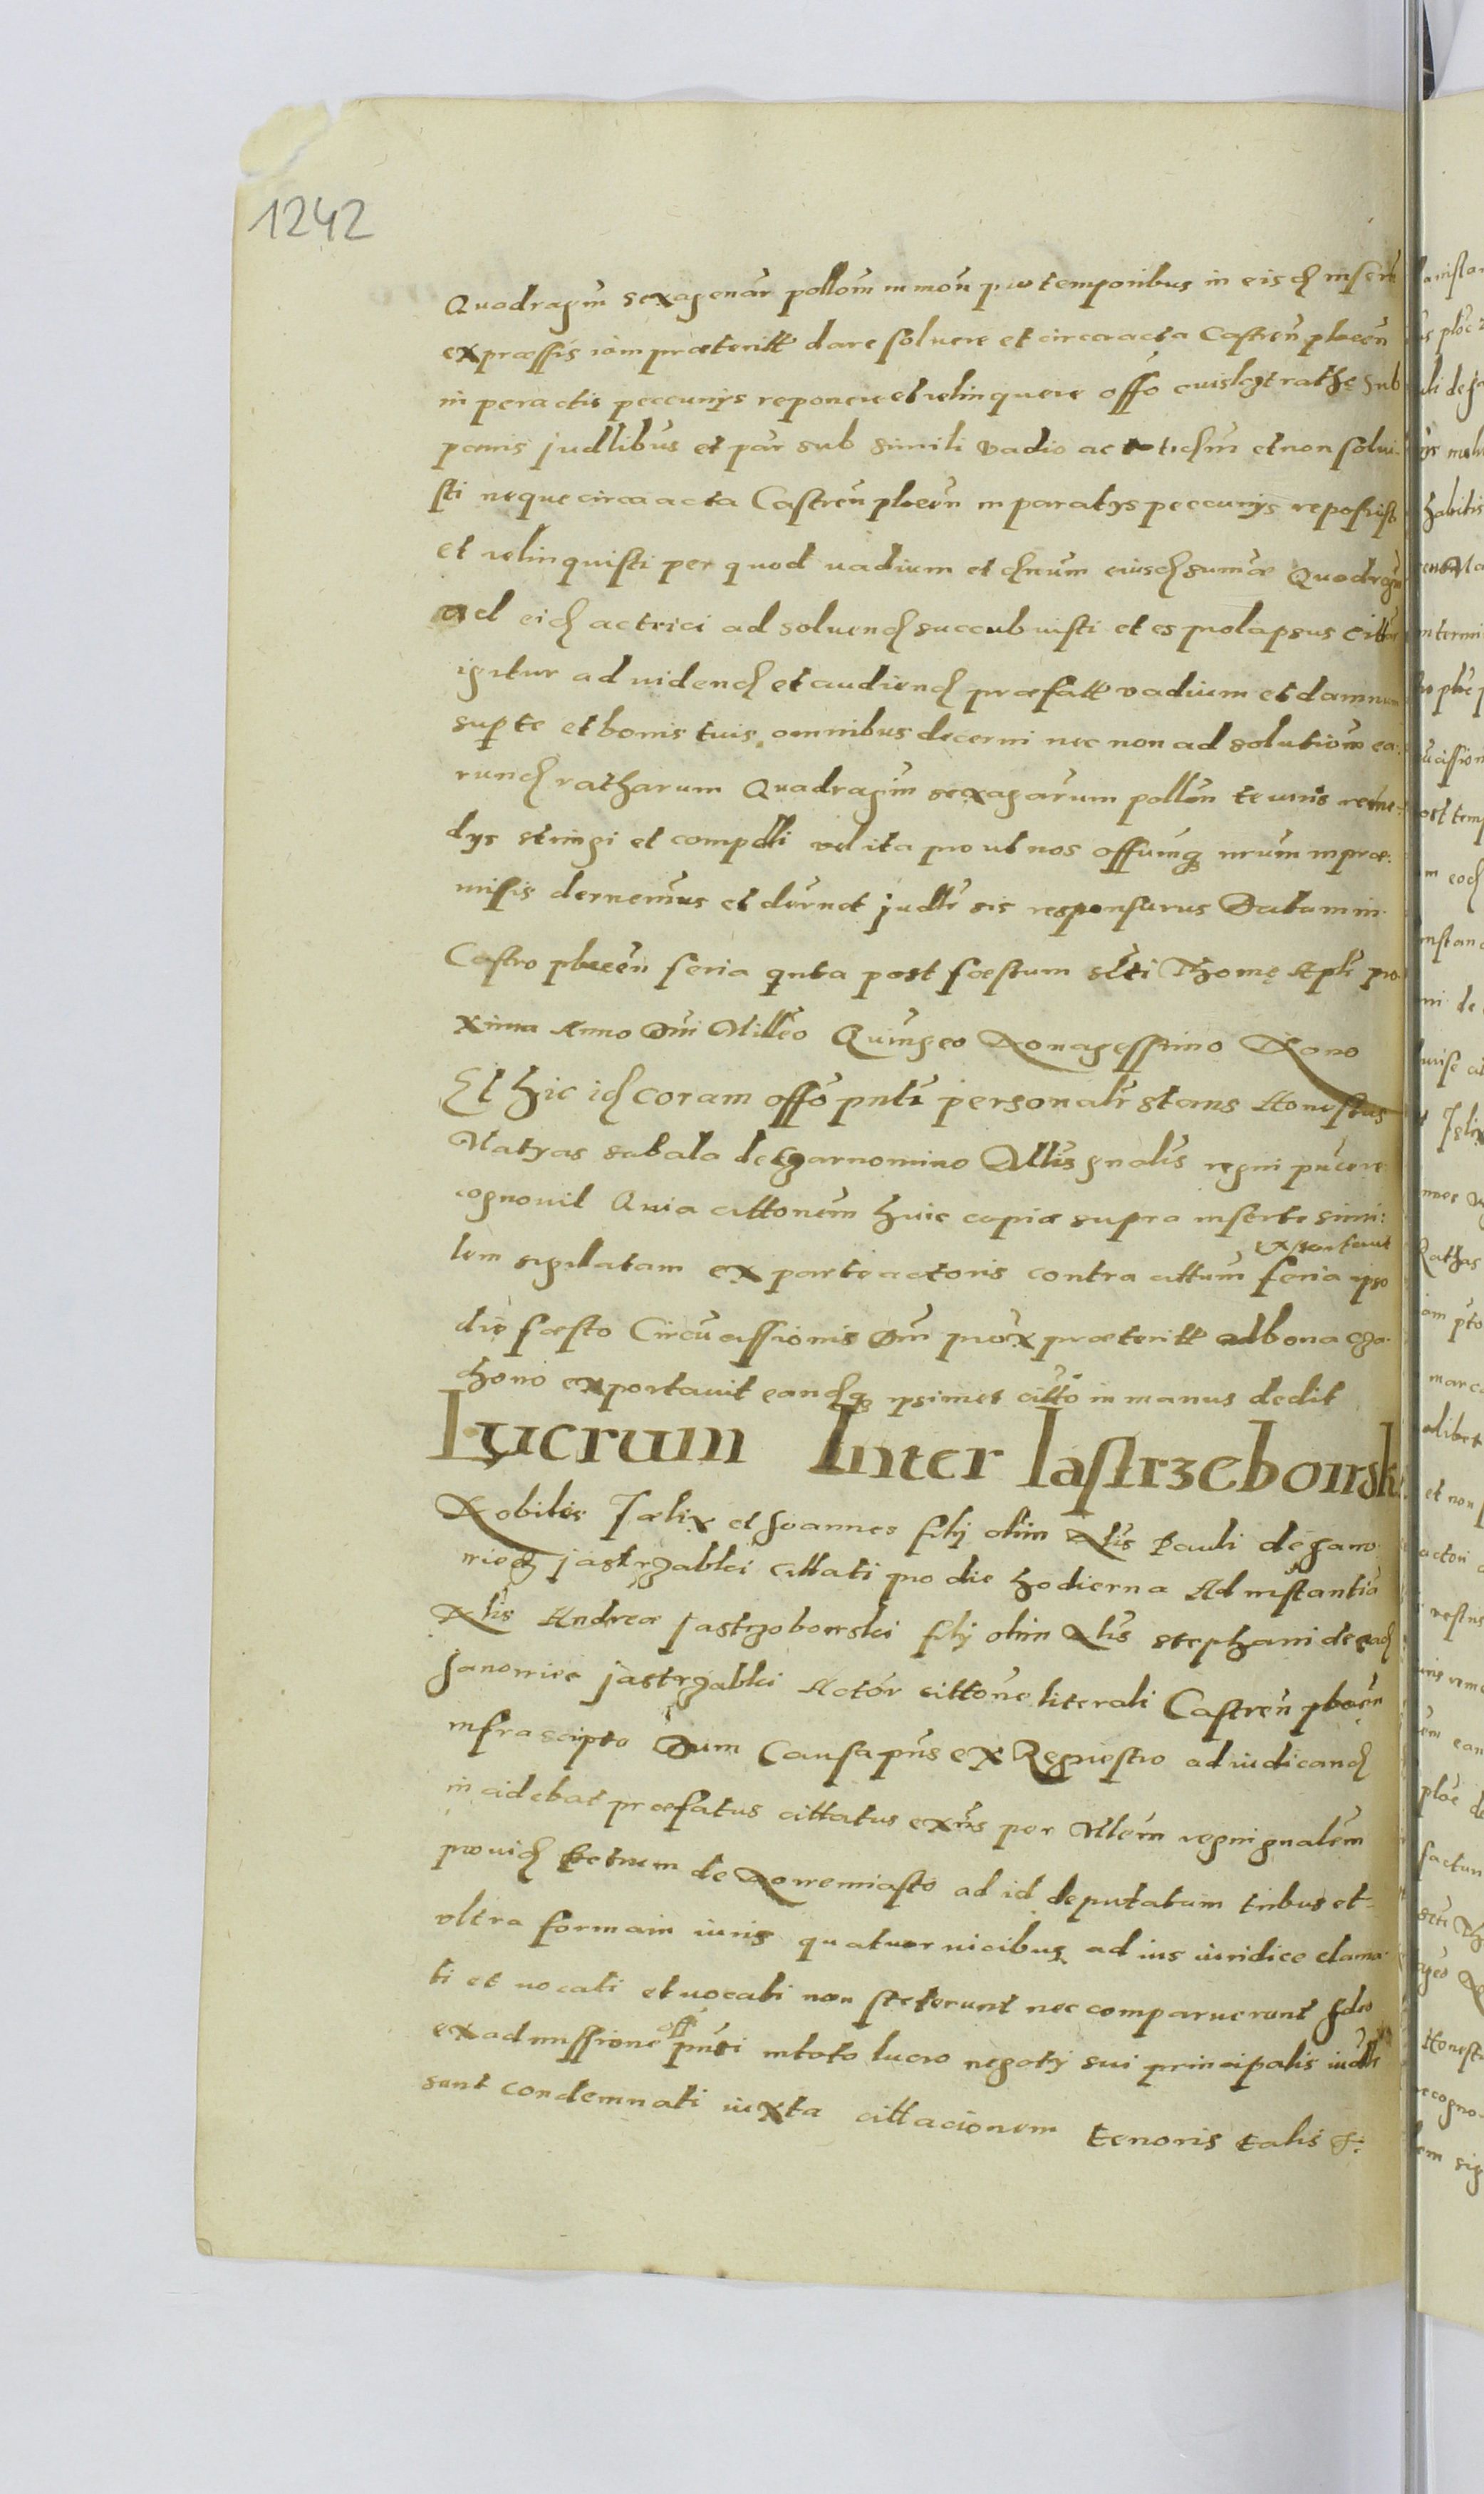 1242
Quadragin sexagenar pollom in mon pro temporibus in eisd insert
expræssis iam præteritt dare soluere et circa acta Castren plocen
in peractis peccunys reponere et relinquere offo cuislgt rathę sub
pœnis judlibus et par sub simili vadio ac et tichm et non solui-
sti neque circa acta Castren plocen in paratys peccunys reposuisti
et relinquisti per quod uadium et dnum eiusd sumæ Quadragin
ad eid actrici ad soluend succubuisti et es prolapsus Citt
igitur ad uidend et audiend præfatt vadium et damnum
sup te et bonis tuis omnibus decerni nec non ad solutionem ea:
rund ratharum Quadragin sexagarum pollon te uris reme:
dys stringi et compelli vel ita prout nos offumq nrum in præ:
misis dernemus et dernet judlr sis responsurus Datum in
Castro plocen feria qnta post fœstum scti Thomę Apli pro
xima Anno Dni Milleo Quingeo Nonagessimo Nono
Et hic id coram offo pnti personalr stans Honestus
Matyas subala de Czarnomino Mllis gnalis regni pu
cognouit Quia cittonem huic copiæ supra inserte simi:
exportauit
lem sigilatam ex parte actoris contra cittum feria ipso
die fœsto Circucissionis Dni prox præteritt ad bona Gza
hono exportauit eandq ipsimet citto in manus dedit
Lucrum Inter Iastrzebowski
Nobiles Fælix et Joannes filij olim Nlis Pauli de Jano
wiecz jastrzabki Cittati pro die hodierna Ad instantia
Nlis Andreæ Jastrzobowski filij olim Nlis stephani de ead
Janowiec jastrzabki Actor cittone literali Castren plocen
infrascipto Dum Causa pns ex Regiestro ad iudicand
incidebat præfatus cittatus exns per Mlem regni gnalem
prouid Petrum de Nowemiasto ad id deputatum tribus et
vltra formam iuris quatuor uicibus ad ius iuridice clama
ti et uocati et uocati non steterunt nec comparuerunt Ideo
ex admissione off pnti in toto lucro negotij sui principalis iudlr
sunt condemnati iuxta cittacionem tenoris talis